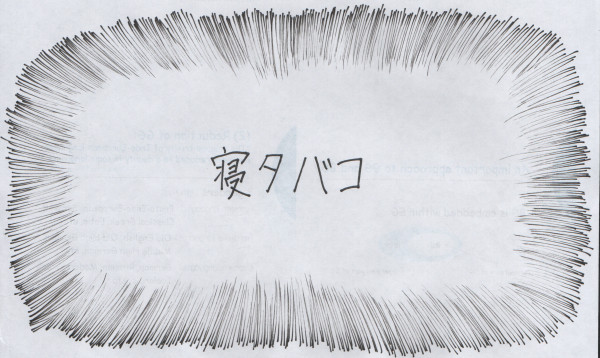 寝タバコ